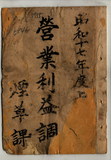 昭和十七年度上
營業利益調
煙草課